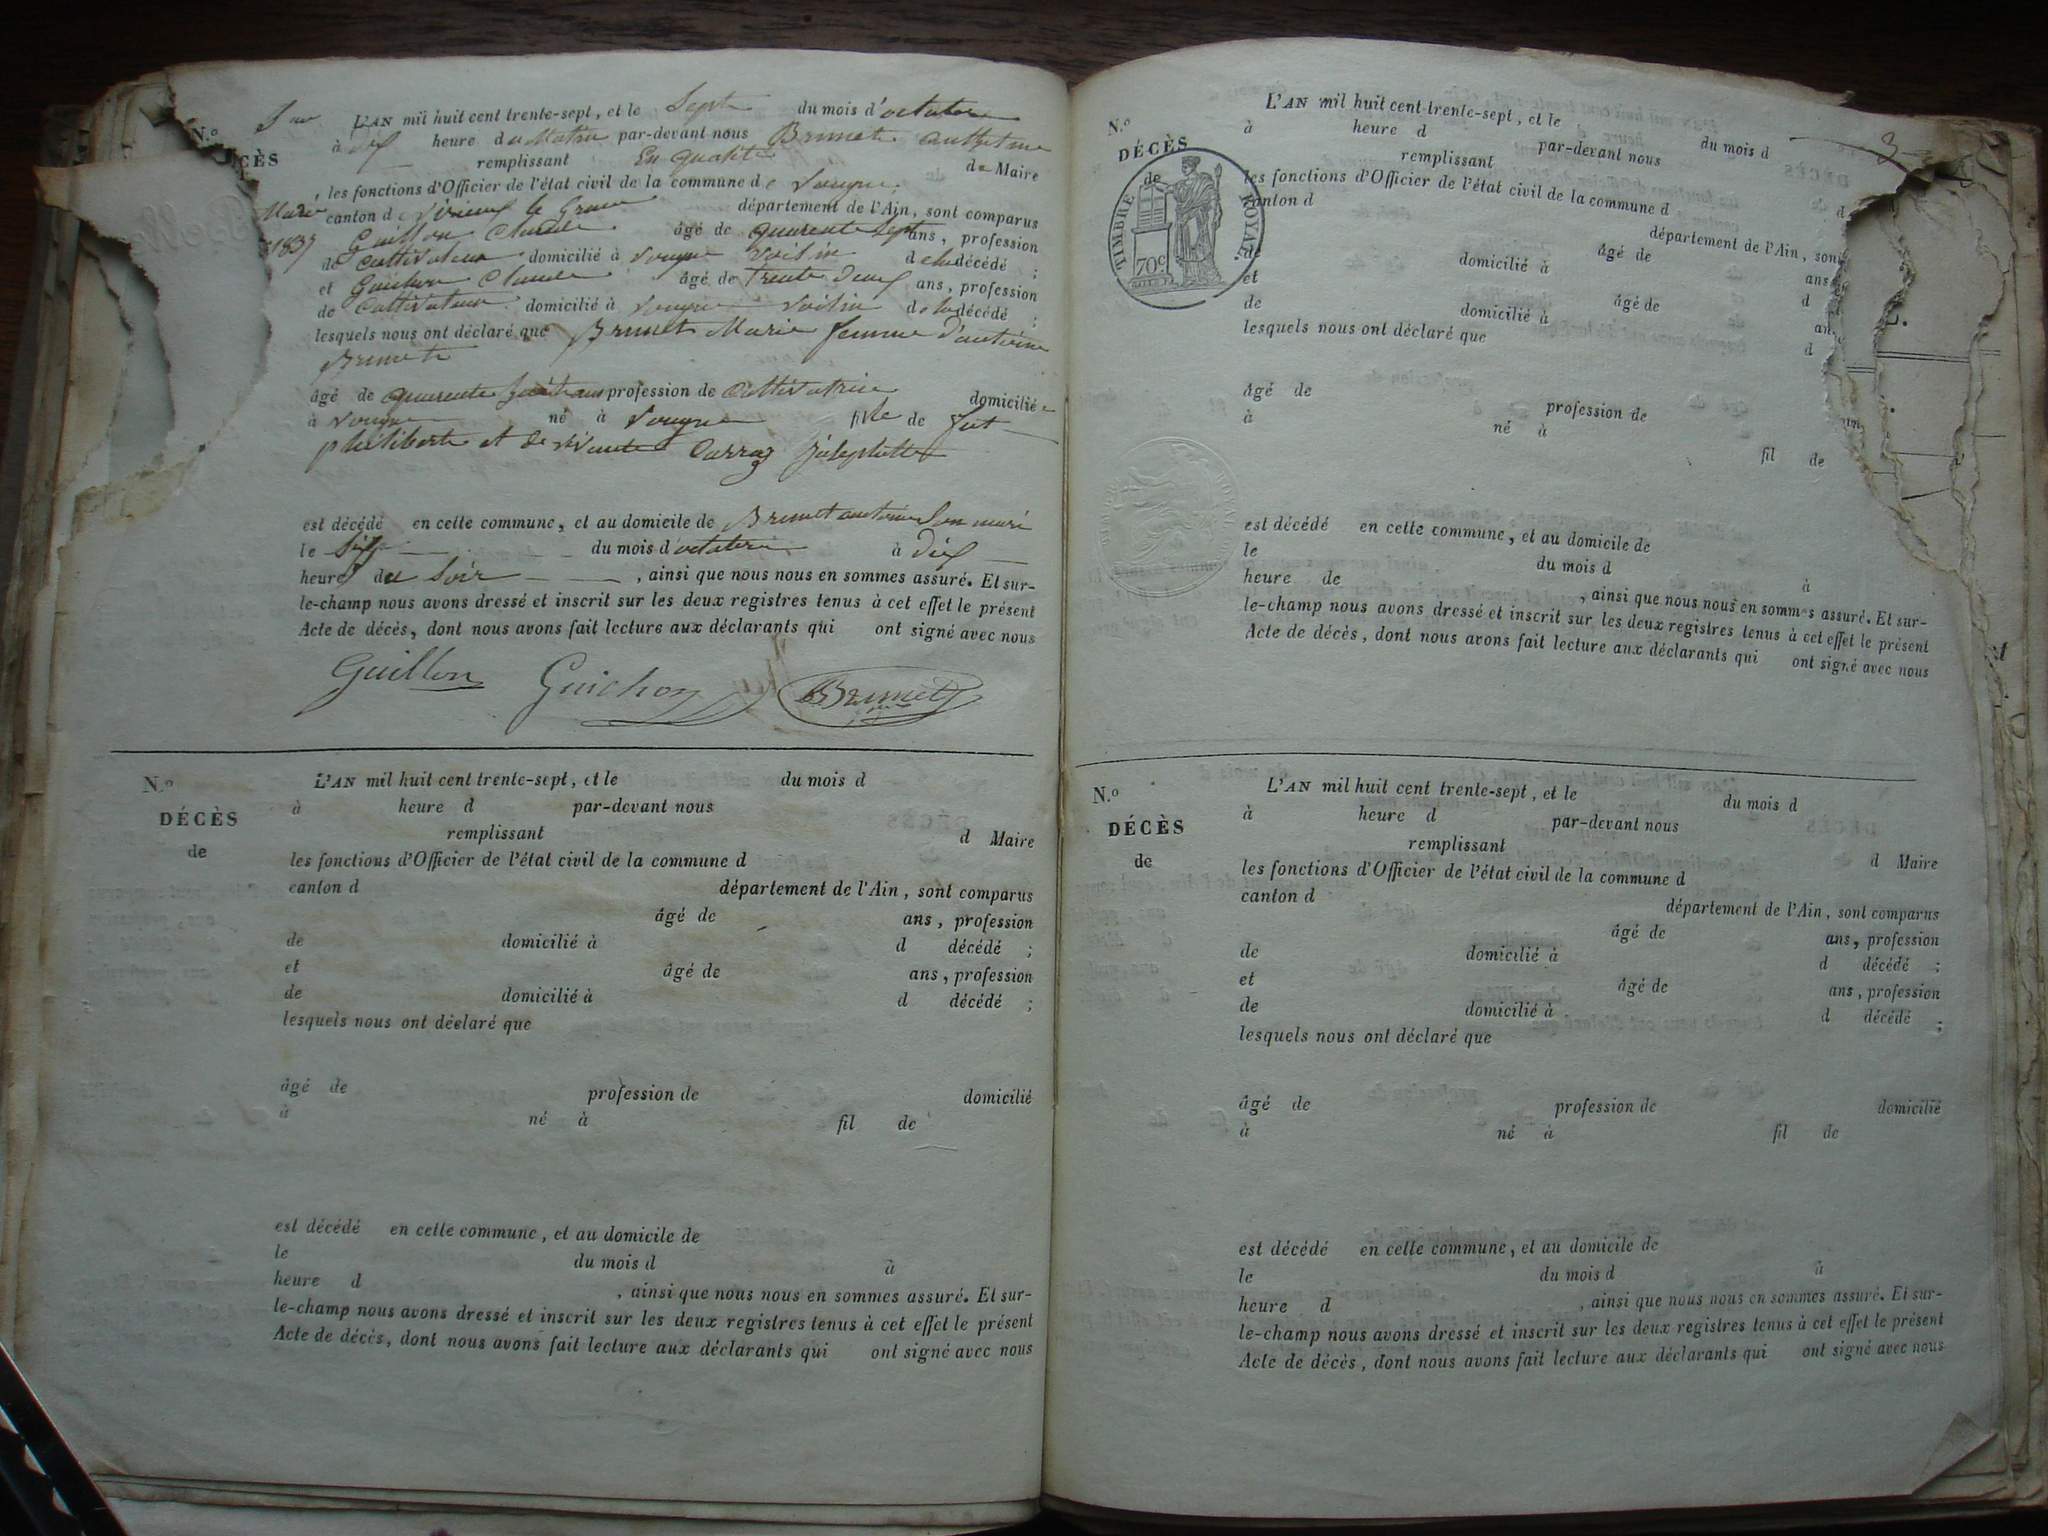 N.º
CÈS
Marie
1837
L'AN mil huit cent trente-sept, et le Sept du mois d'octobre
à dix heure du Matin par-devant nous Brunet
remplissant En qualité de Maire
, les fonctions d'Officier de l'état civil de la commune de Songieu
canton de Virieux le Grand département de l'Ain, sont comparus
Guillon Claude âgé de quarente Sept ans, profession
de Cultivateur domicilié à voisin de la décédé ;
et Guichon Claude âgé de Trente deux ans, profession
de Cultivateur domicilié à voisin de la décédé ;
lesquels nous ont déclaré que Brunet Marie femme d'antoine
Brunet
âgé de quarente huit ans profession de Cultivatrice domicilié e
à né à fille de feu
philibert et de Josephette
est décédé en cette commune, et au domicile de Brunet antoine Son mari
le Six du mois d'octobre à dix
heures du Soir , ainsi que nous nous en sommes assuré. Et sur-
le-champ nous avons dressé et inscrit sur les deux registres tenus à cet effet le présent
Acte de décès, dont nous avons fait lecture aux déclarants qui ont signé avec nous
Guillon Guichon Brunet
N.º
DÉCÈS
de
L'AN mil huit cent trente-sept, et le du mois d
à heure d par-devant nous
remplissant d Maire
les fonctions d'Officier de l'état civil de la commune d
canton d département de l'Ain, sont comparus
âgé de ans, profession
de domicilié à d décédé ;
et âgé de ans, profession
de domicilié à d décédé ;
lesquels nous ont déclaré que
âgé de profession de domicilié
à né à fil de
est décédé en cette commune, et au domicile de
le du mois d à
heure d , ainsi que nous nous en sommes assuré. Et sur-
le-champ nous avons dressé et inscrit sur les deux registres tenus à cet effet le présent
Acte de décès, dont nous avons fait lecture aux déclarants qui ont signé avec nous
3
N.º
DÉCÈS
de
TIMBRE ROYAL
70c
L'AN mil huit cent trente-sept, et le du mois d
à heure d par-devant nous
remplissant d
les fonctions d'Officier de l'état civil de la commune d
canton d département de l'Ain, son
âgé de ans
de domicilié à d
et âgé de an
de domicilié à d
lesquels nous ont déclaré que
âgé de profession de
à né à fil de
est décédé en cette commune, et au domicile de
le du mois d à
heure de , ainsi que nous nous en sommes assuré. Et sur-
le-champ nous avons dressé et inscrit sur les deux registres tenus à cet effet le présent
Acte de décès, dont nous avons fait lecture aux déclarants qui ont signé avec nous
N.º
DÉCÈS
de
L'AN mil huit cent trente-sept, et le du mois d
à heure d par-devant nous
remplissant d Maire
les fonctions d'Officier de l'état civil de la commune d
canton d département de l'Ain, sont comparus
âgé de ans, profession
de domicilié à d décédé ;
et âgé de ans, profession
de domicilié à d décédé ;
lesquels nous ont déclaré que
âgé de profession de domicilié
à né à fil de
est décédé en cette commune, et au domicile de
le du mois d à
heure d , ainsi que nous nous en sommes assuré. Et sur-
le-champ nous avons dressé et inscrit sur les deux registres tenus à cet effet le présent
Acte de décès, dont nous avons fait lecture aux déclarants qui ont signé avec nous